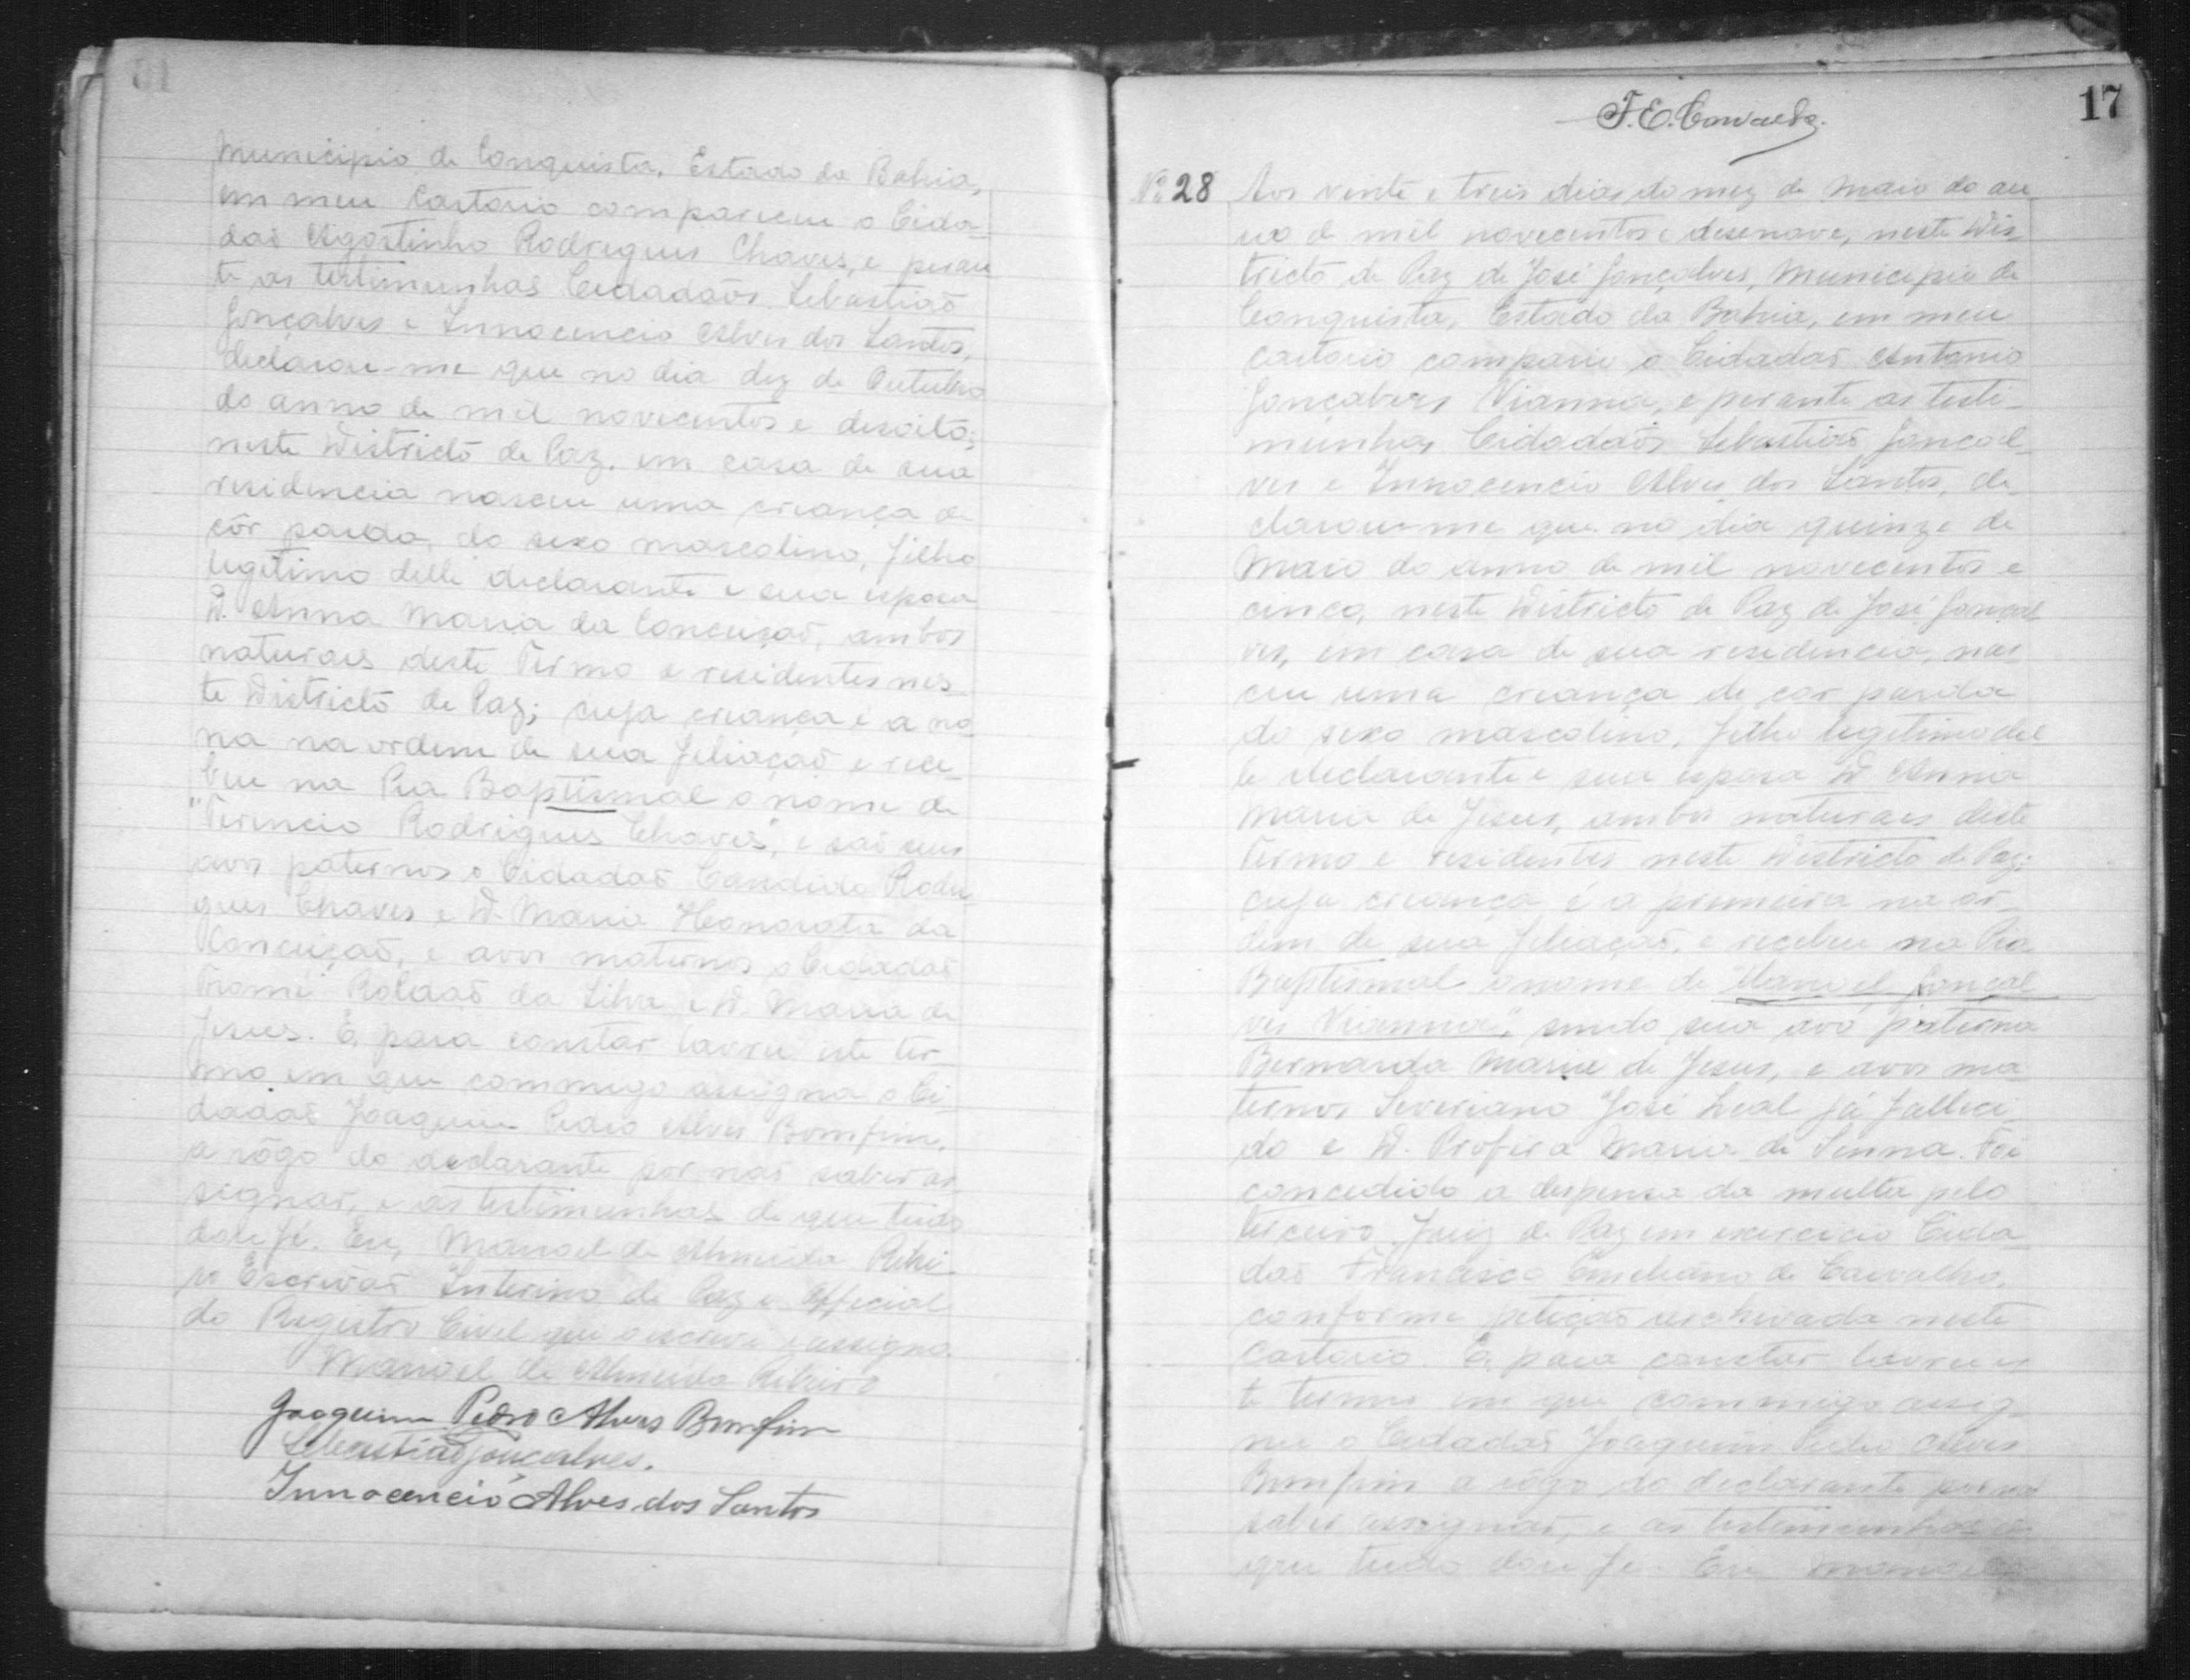 Municipio de Conquista, Estado da Bahia,
em meu Cartorio compareceu o Cida-
dão Agostinho Rodrigues Chaves, e peran
te as testimunhas Cidadãos Sebastião
Gonçalves e Innocencio Alves dos Santos,
declarou-me que no dia dez de Outubro
do anno de mil novecentos e desoito;
neste Districto de Paz, em casa de sua
residencia nasceu uma criança de
côr parda, do sexo mascolino, filho
legitimo delle declarante e sua esposa
D. Anna Maria da Conceição, ambos
naturaes deste Termo e residentes nes-
te Districto de Paz; cuja criança é a no
na na ordem de sua filiação e rece-
beu na Pia Baptismal o nome de
"Terencio Rodrigues Chaves", e são seus
avos paternos o Cidadão Candido Rodri
gues Chaves e D. Maria Honorata da
Conceição, e avos maternos o Cidadão
Thomé Roldão da Silva e D. Maria de
Jesus. E para constar lavrei este ter
mo em que commigo assigna o Ci-
dadão Joaquim Pedro Alves Bomfim,
a rôgo do declarante por não saber as
signar, e as testimunhas de que tudo
dou fé. Eu, Manoel de Almeida Ribei-
ro Escrivão Interino de Paz e Official
do Registro Civel que o escrevi e assigno.
Manoel de Almeida Ribeiro
Joaquim Pedro Alves Bomfim
Sebastião Gonçalves.
Innocencio Alves dos Santos
17
F. E. Carvalho.
Nº 28 Aos vinte e treis dias do mez de Maio do an
no de mil novecentos e desenove, neste Dis
tricto de Paz de José Gonçalves, Municipio de
Conquista, Estado da Bahia, em meu
cartorio compareceu o Cidadão Antonio
Gonçalves Vianna, e perante as testi-
munhas Cidadãos Sebastião Gonçal
ves e Innocencio Alves dos Santos, de
clarou-me que no dia quinze de
Maio do anno de mil novecentos e
cinco, neste Districto de Paz de José Gonçal
ves, em casa de sua residencia, nas
ceu uma criança de cor parda
do sexo mascolino, filho legitimo del
le declarante e sua esposa D. Anna
Maria de Jesus, ambos naturaes deste
Termo e residentes neste Districto de Paz;
cuja criança é a primeira na or-
dem de sua filiação, e recebeu na Pia
Baptismal o nome de "Manoel Gonçal
ves Vianna", sendo sua avó paterna
Bernarda Maria de Jesus, e avos ma
ternos Severiano José Leal já falleci
do e D. Profira Maria de Senna. Foi
concedido a despensa da multa pelo
terceiro Juiz de Paz em exercicio Cida-
dão Francisco Emiliano de Carvalho,
conforme petição archivada neste
Cartorio. E para constar lavrei es
te termo em que commigo assig-
na o Cidadão Joaquim Pedro Alves
Bomfim a rôgo do declarante por não
saber assignar, e as testimunhas de
que tudo dou fé. Eu Manoel